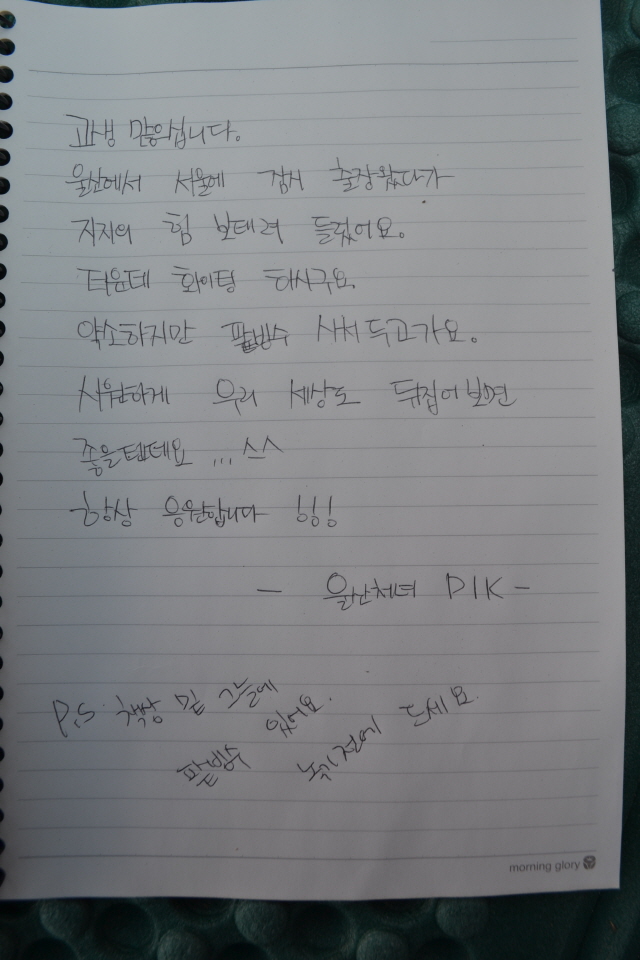 고생 많으십니다.
울산에서 서울에 잠시 출장왔다가
지지의 힘 보태려 들렀어요.
더운데 화이팅 하시구요.
약소하지만 팥빙수 사서 두고가요.
시원하게 우리 세상도 뒤집어보면
좋을텐데요 ... ^^
항상 응원합니다 !!!
- 울산처녀 DIK -
P.S. 책상 밑 그늘에
팥빙수 있어요.
녹기전에 드세요.
morning glory